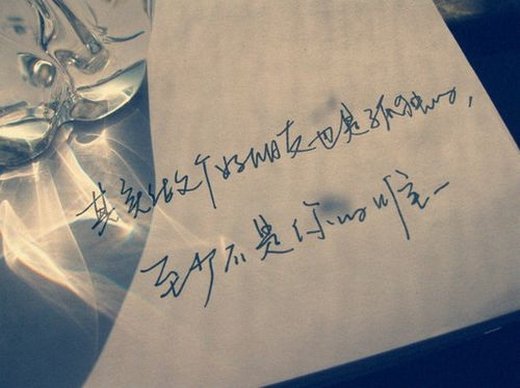 其实做个好朋友也是孤独的，
至 不是你的唯一